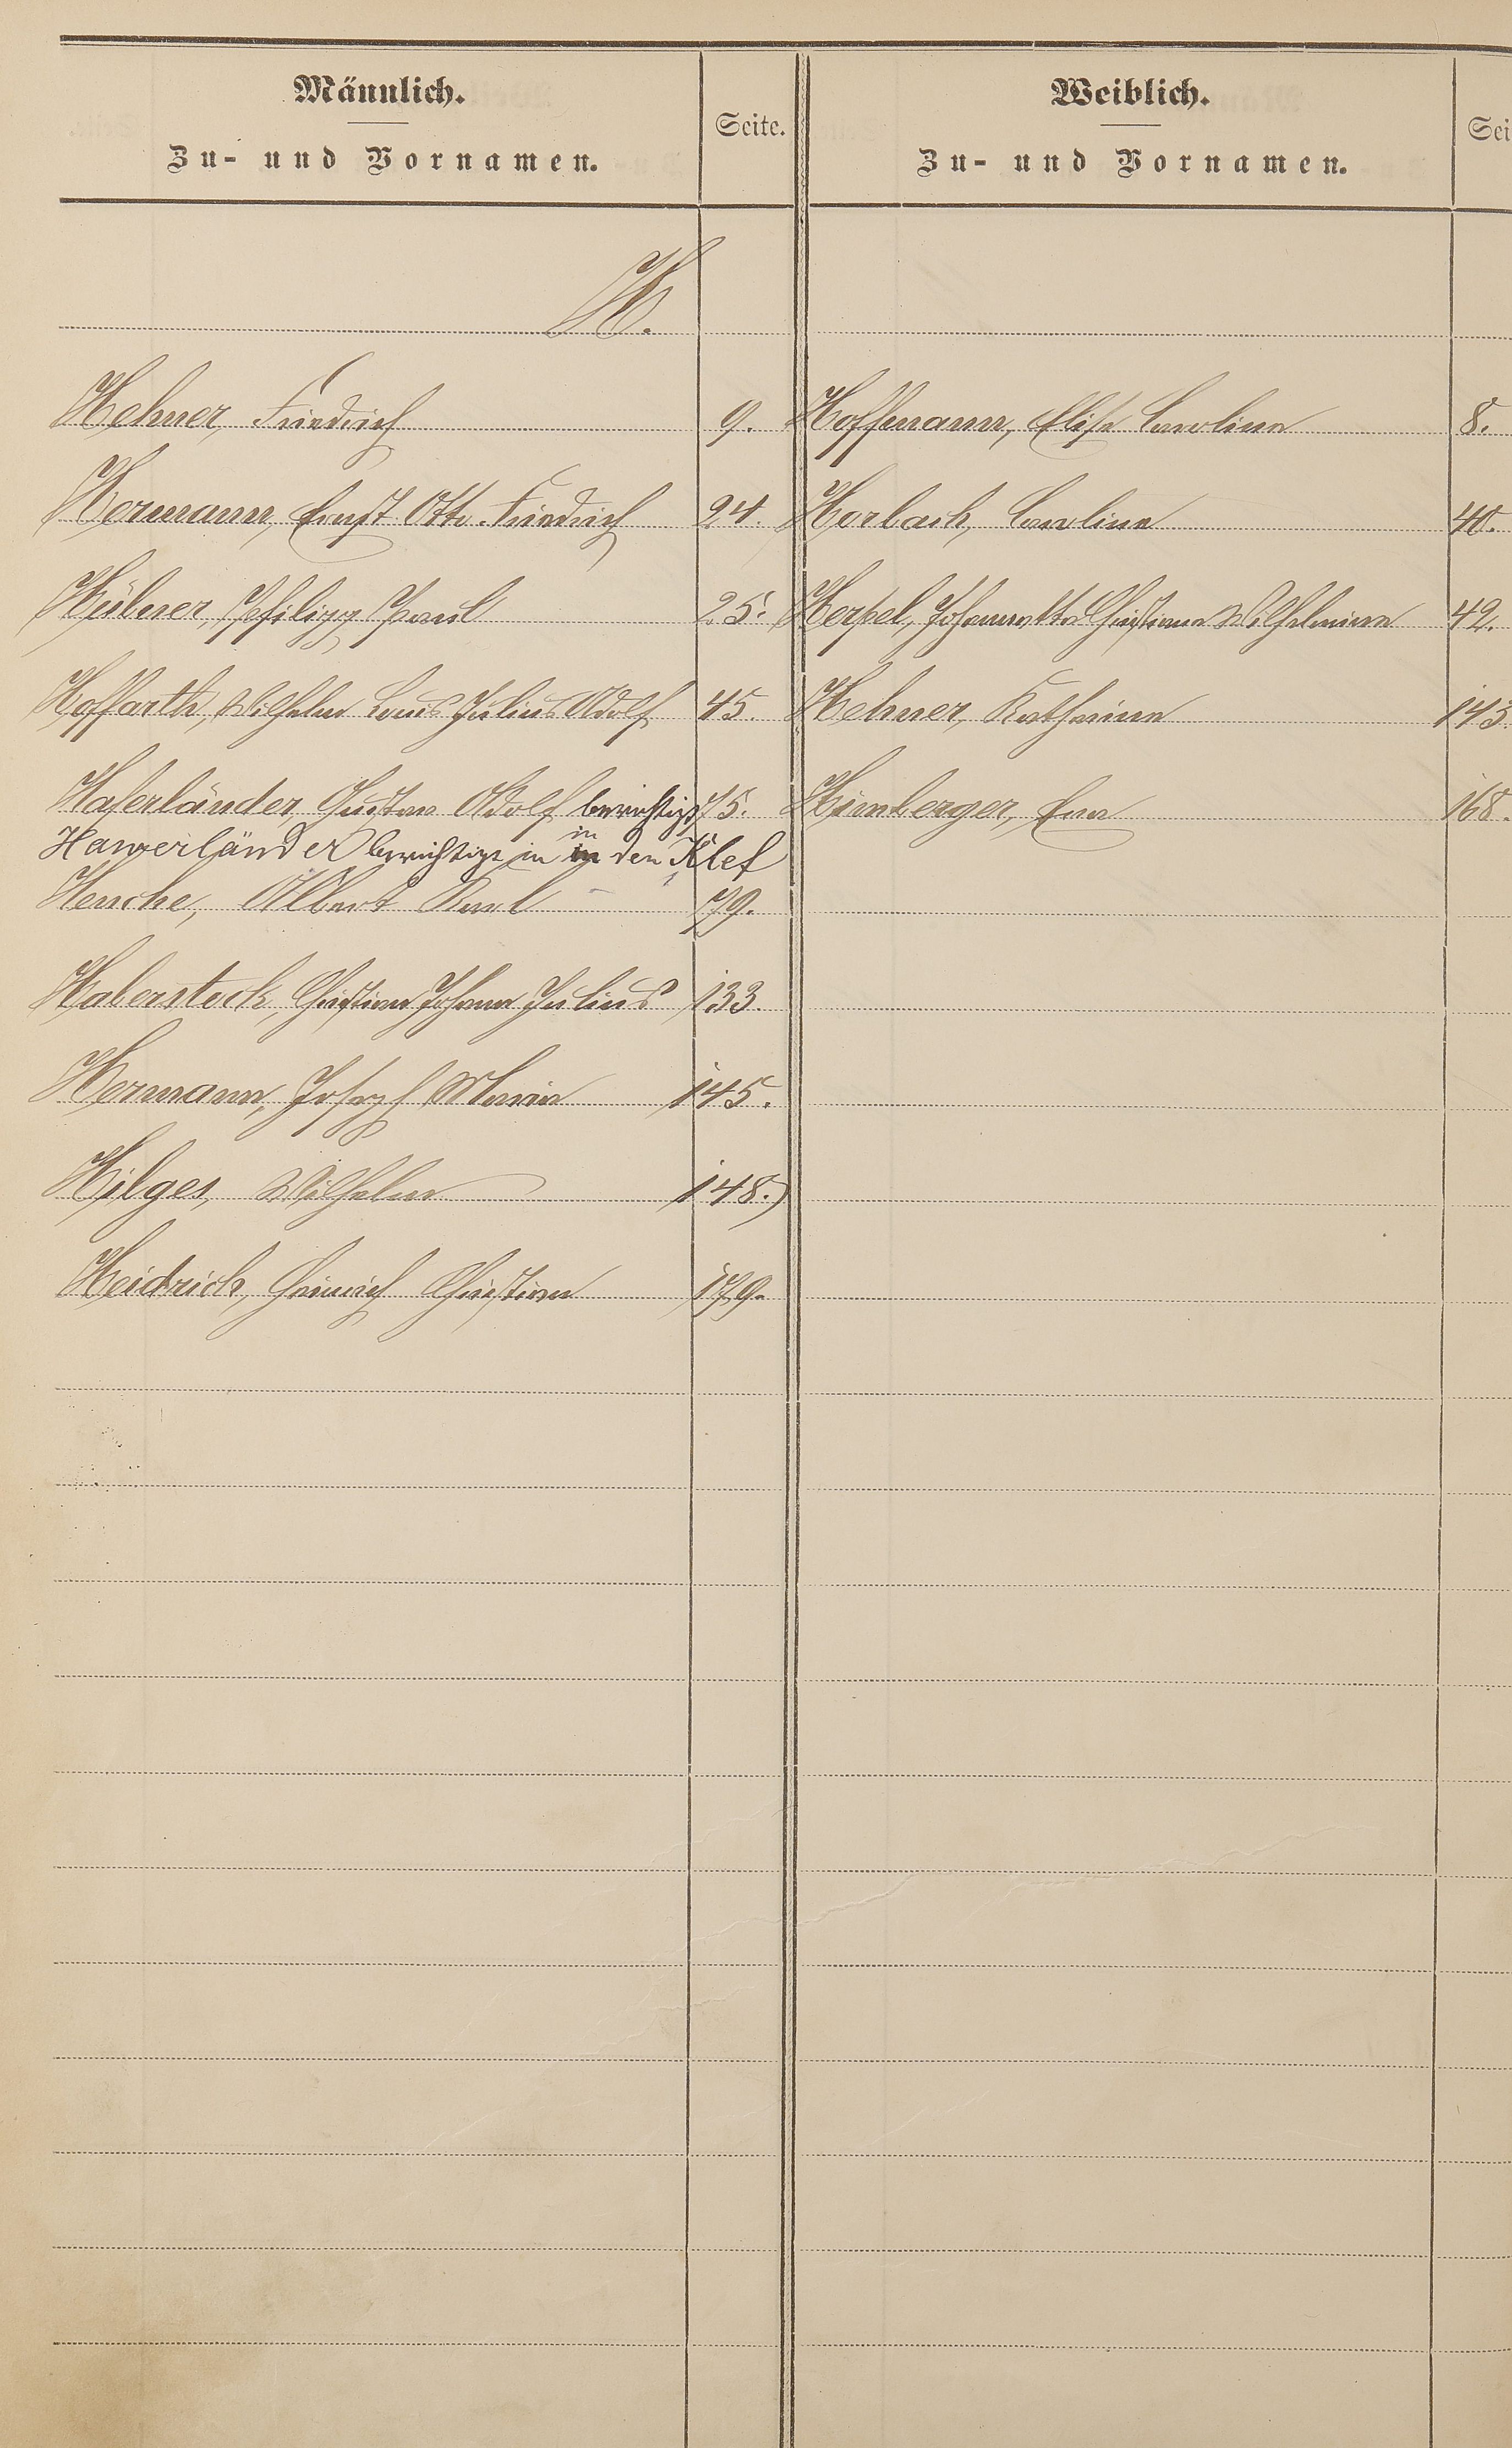 Männlich.
Zu- und Vornamen.
Seite.
Weiblich.
Zu- und Vornamen.
Sei
H.
Hehner, Friedrich 9.
Hoffmann, Elise Caroline 8.
Hermann, Ernst Otto Friedrich 24.
Horbach, Caroline 40.
Hübner, Philipp Paul 25.
Herpel, Johannette Christiane Wilhelmine 42.
Hoffarth, Wilhelm Louis Julius Adolf 45.
Hehner, Katharina 143.
Haferländer, Gustav Adolf berichtigt 75.
Himberger, Eva 168.
in
Hawerländer berichtigt in in den Klef
Henche, Albert Karl 79.
Habersteck, Christian Johann Julius 133.
Hermann, Joseph Maria 145.
Hilges, Wilhelm 148.
Heidrich, Heinrich Christian 179.